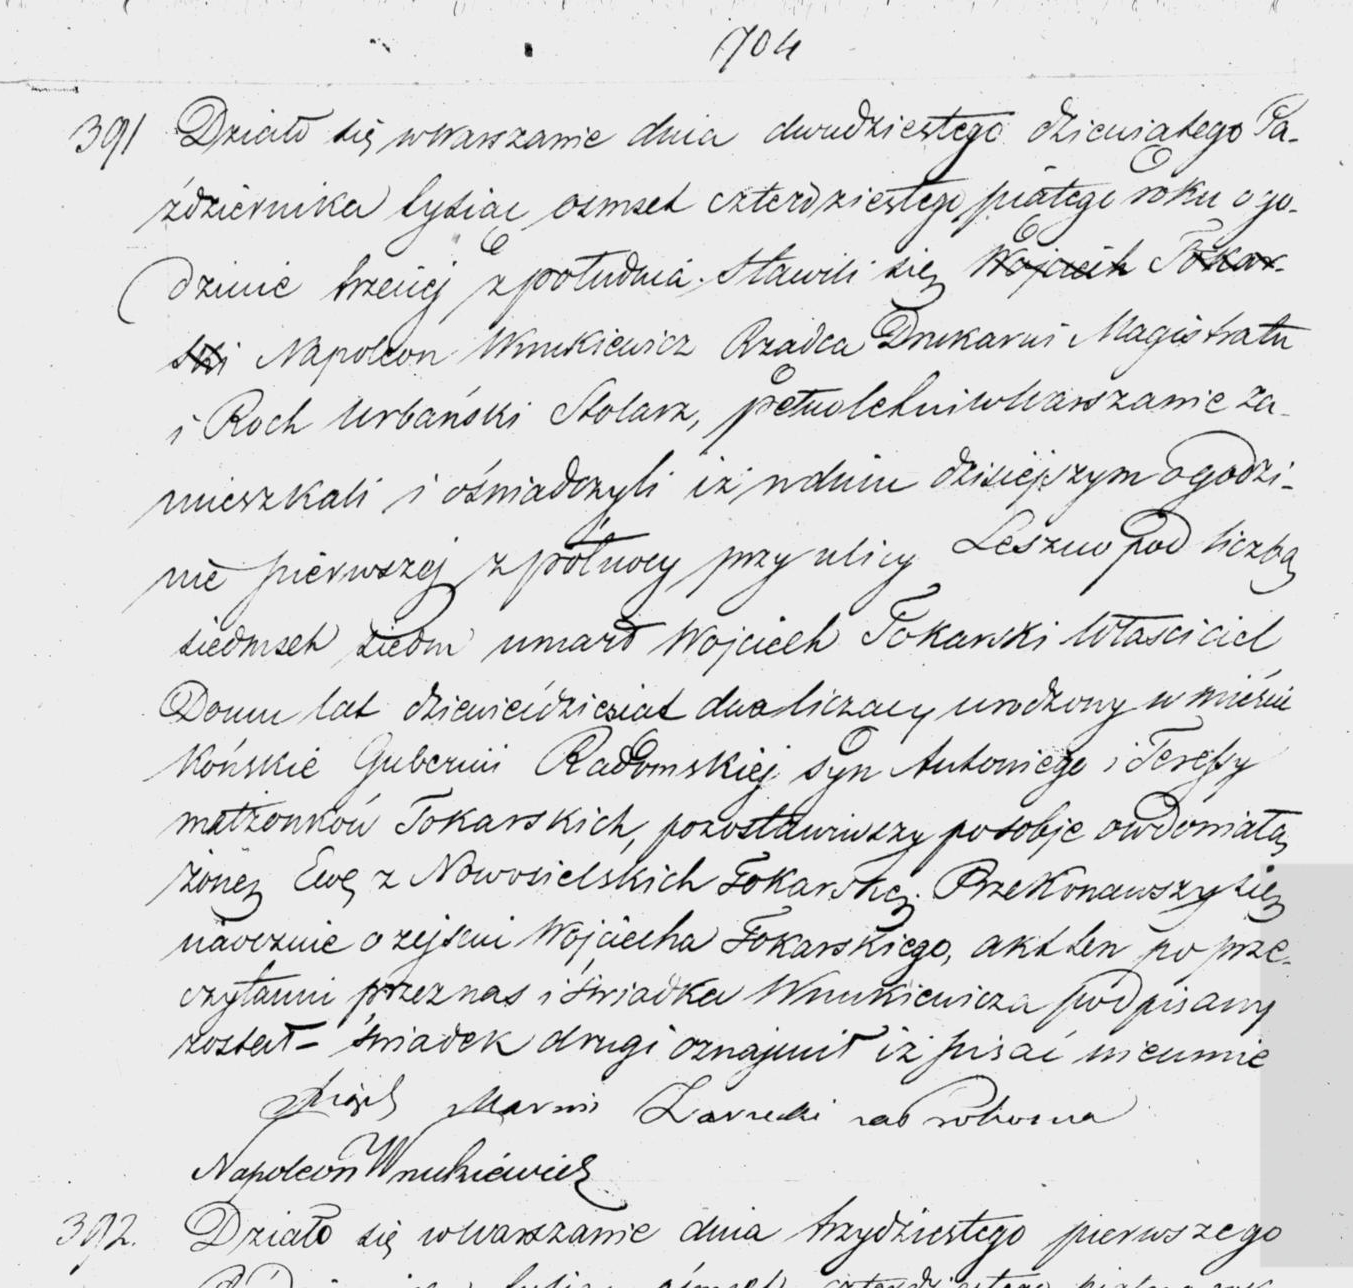 704
391 Działo się w Warszawie dnia dwudziestego dziewiątego Pa-
ździernika tysiąc osmset czterdziestego piątego roku o go-
dzinie trzeciej z południa. Stawili się Wojciech Tokar-
ski Napoleon Wnukiewicz Rządca Drukarni Magistratu
i Roch Urbański Stolarz, pełnoletni w Warszawie za-
mieszkali i oświadczyli iż w dniu dzisiejszym o godzi-
nie pierwszej z północy przy ulicy Leszno pod liczbą
siedmset siedm umarł Wojciech Tokarski Właściciel
Domu lat dziewięćdziesiat dwa liczący urodzony w mieście
Końskie Gubernii Radomskiej syn Antoniego i Teressy
małżonków Tokarskich, pozostawiwszy po sobie owdowiałą
żonę Ewę z Nowosielskich Tokarską. Przekonawszy się
naocznie o zejściu Wojciecha Tokarskiego, akt ten po prze-
czytaniu przez nas i świadka Wnukiewicza podpisany
został – świadek drugi oznajmił iż pisać nieumie
Napoleon Wnukiewicz
392. Działo się w Warszawie dnia trzydziestego pierwszego